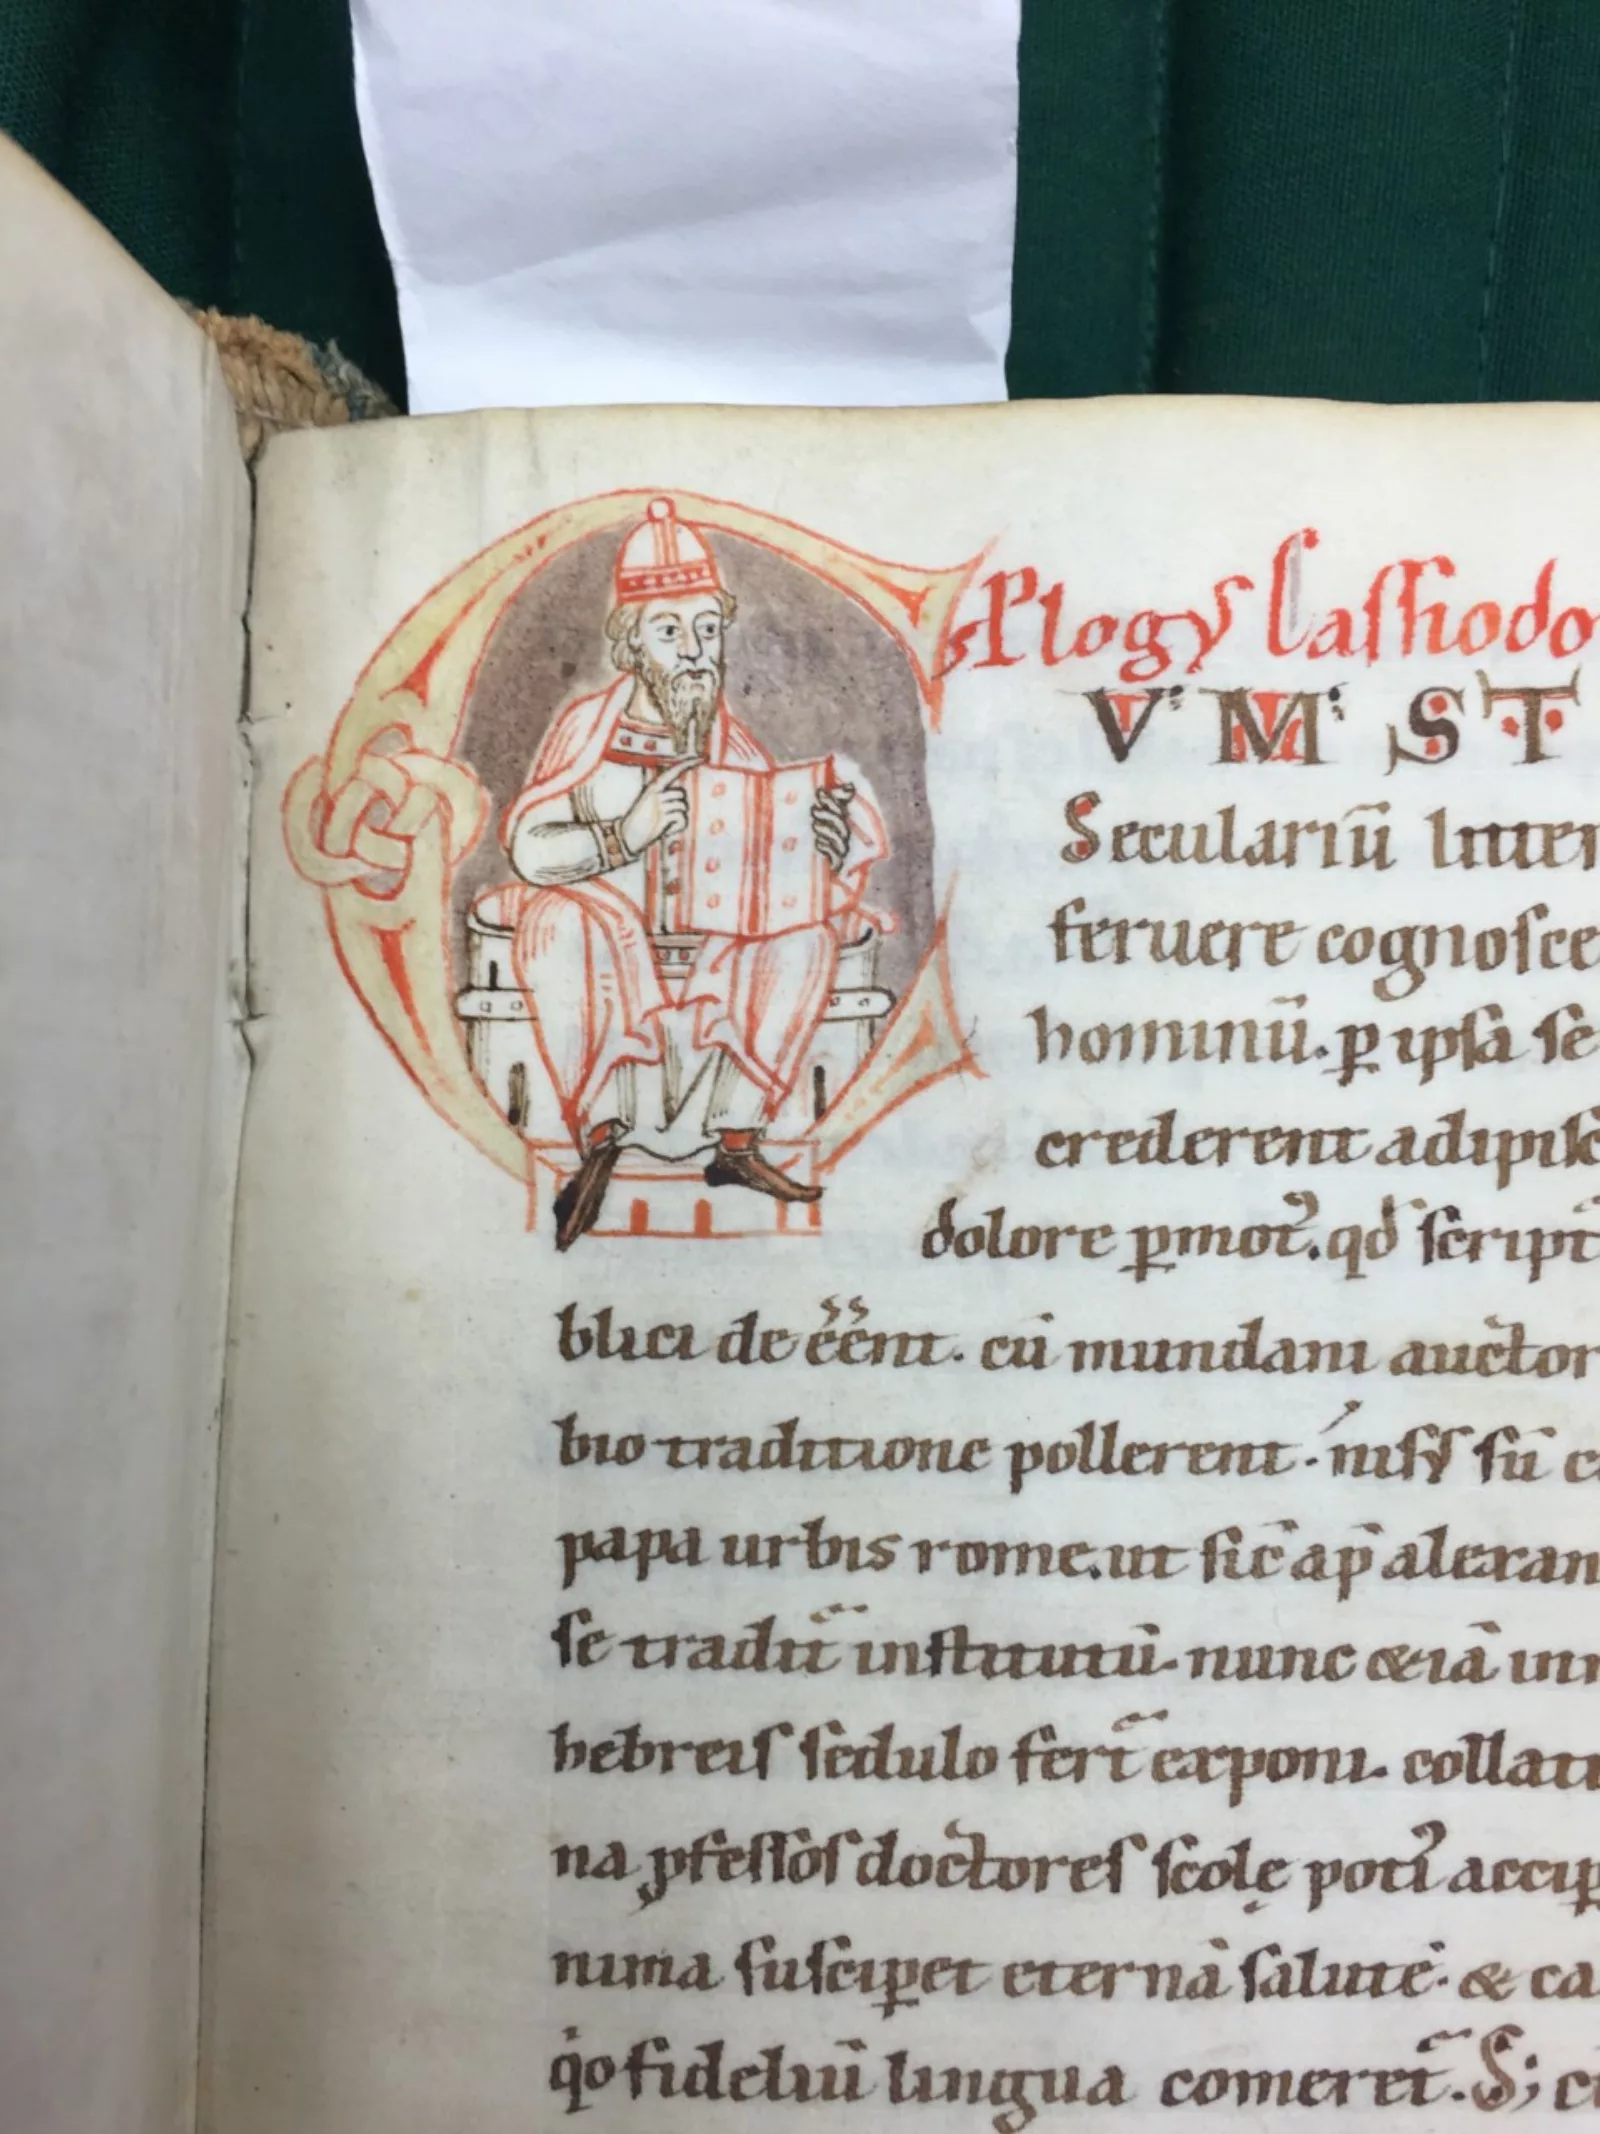 Plogꝰ Cassiodo
C V M S T
Seculariū litter
feruere cognosce
hominū. ꝑ ipsā se
crederent adipisc
dolore ꝑmotꝰ. qd̄ script
blici deēēnt. cū mundani auctor
bio traditione pollerent. nisꝰ sū c
papa urbis rome. ut sic̄ ap̄ alexan
se tradit̄ institutū. nunc &iā in
hebreis sedulo fert̄ exponi. collati
na ꝓfessos doctores scolę poti accip
nima susciꝑet eternā salutē. & ca
q̇o fideliū lingua comeret̄. S; c